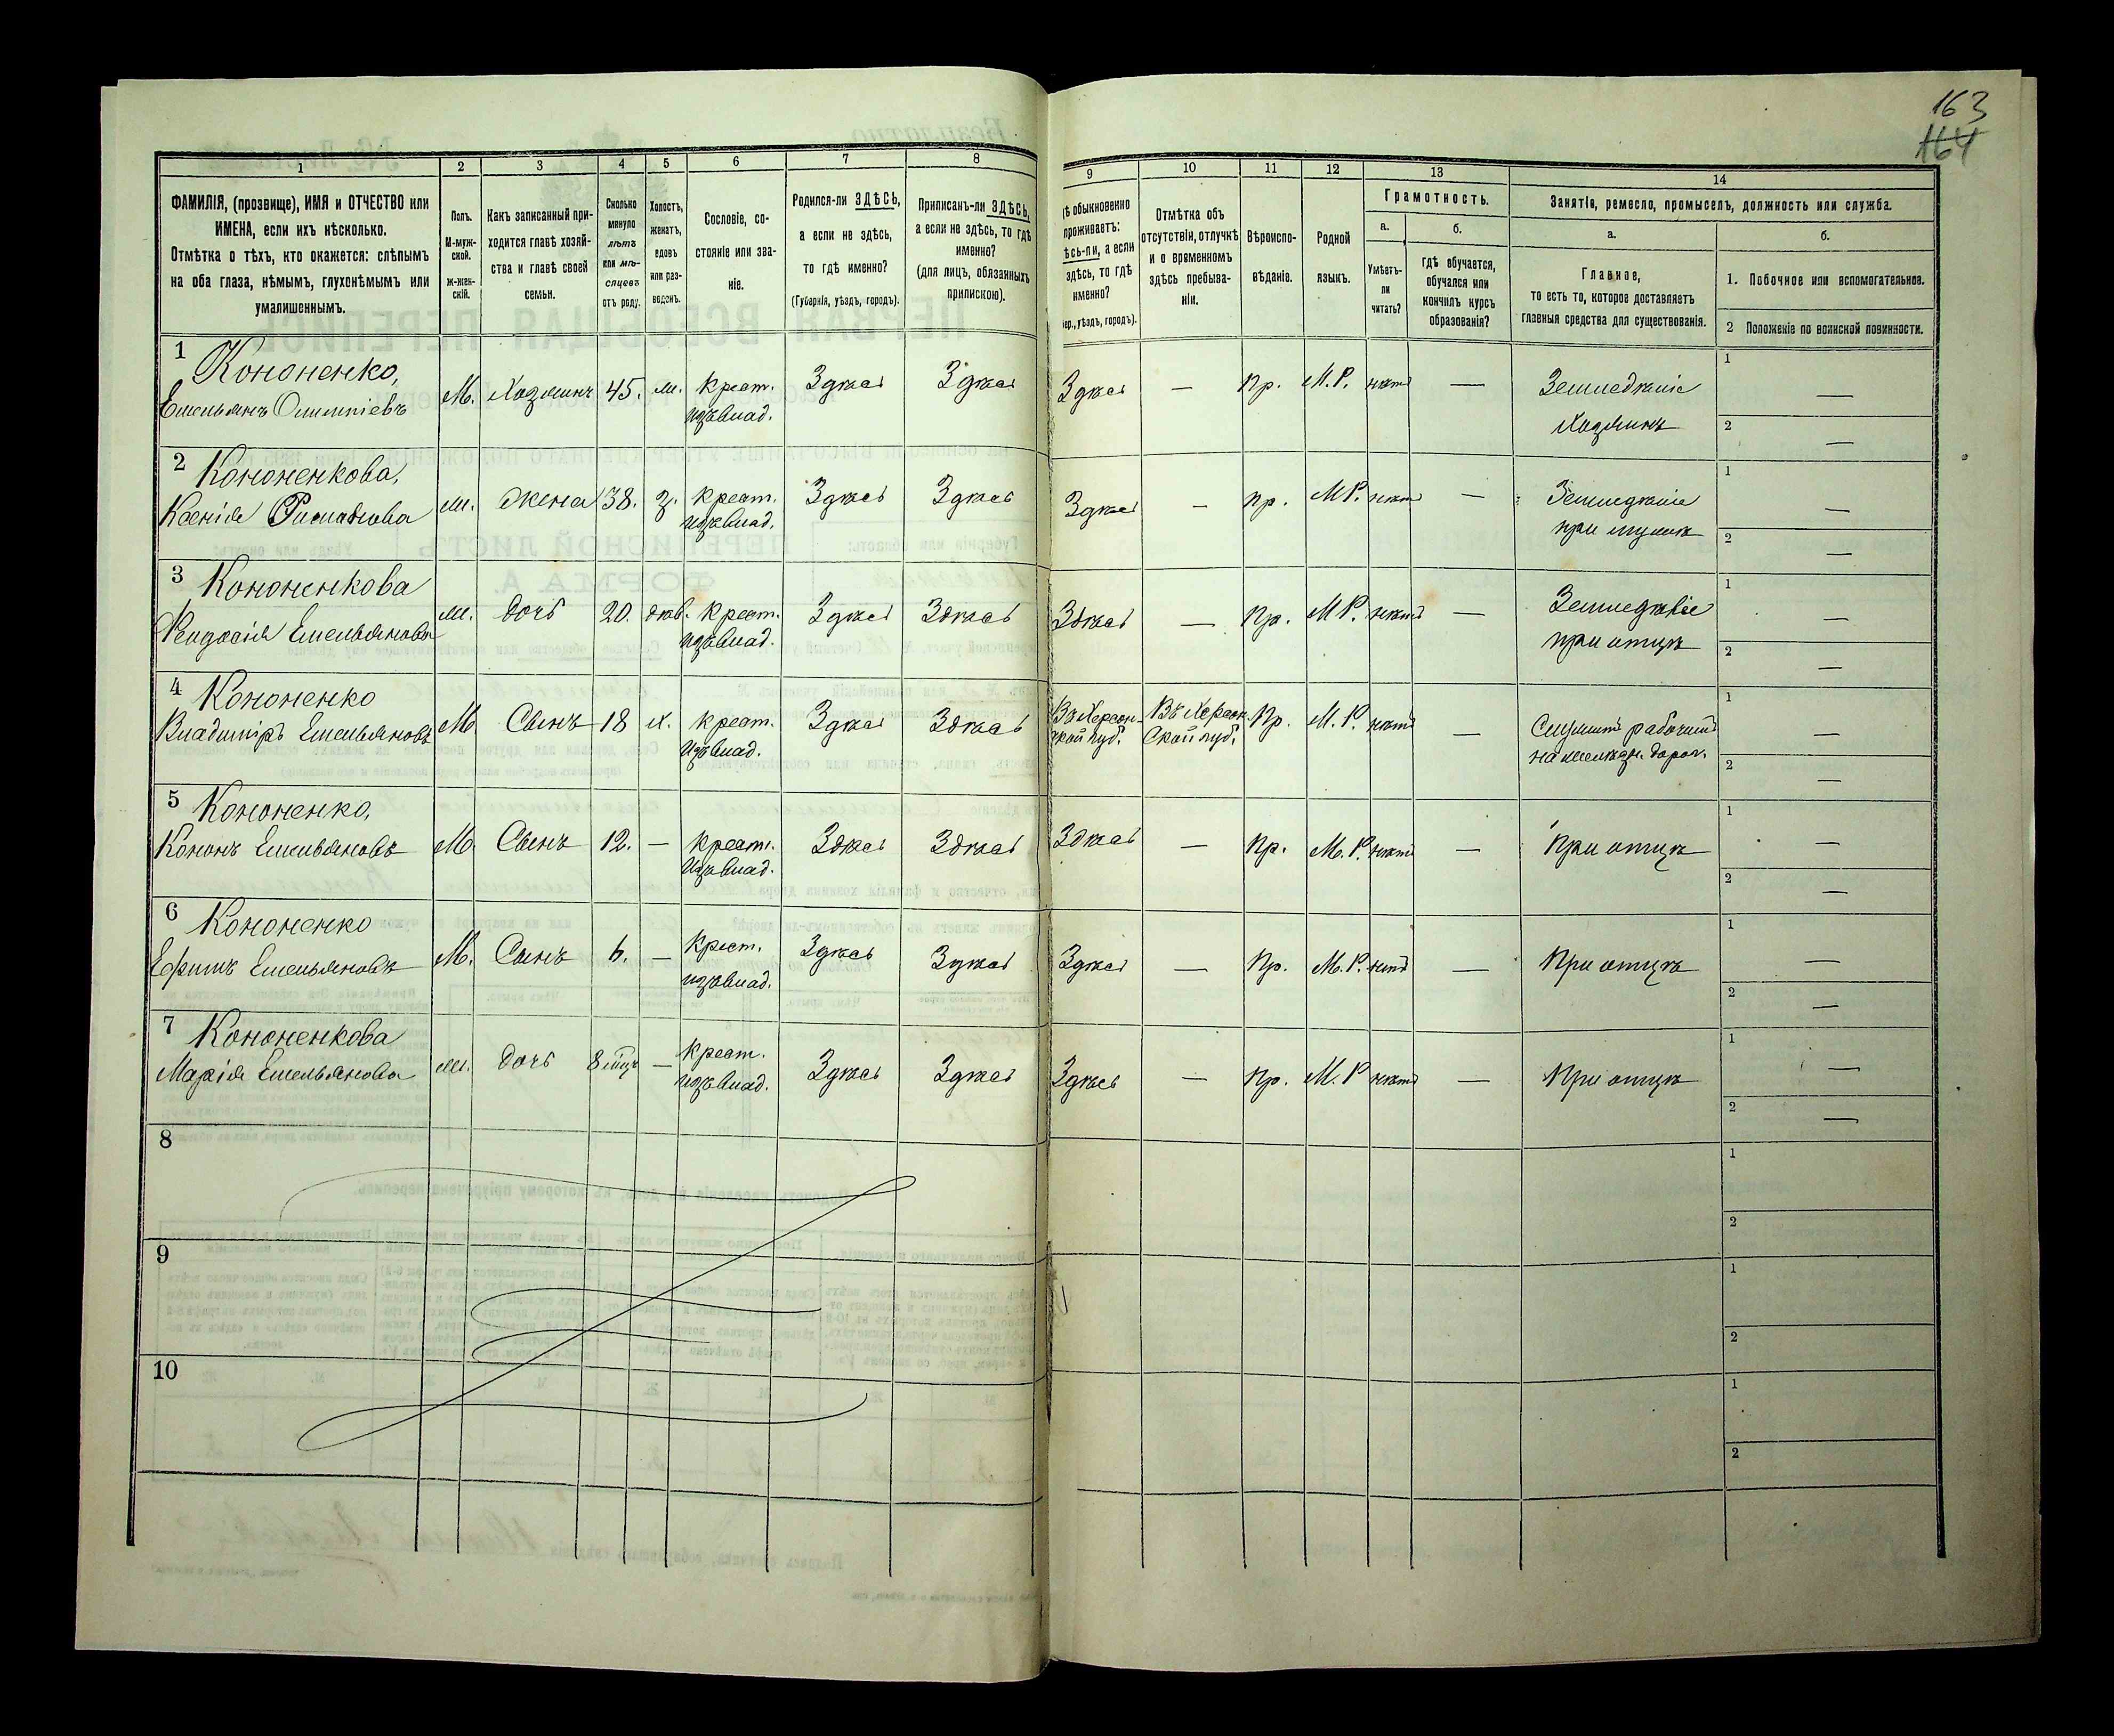 163
164
1
2
3
4
5
6
7
8
ФАМИЛІЯ, (прозвище), ИМЯ и ОТЧЕСТВО или
ИМЕНА, если ихъ нѣсколько.
Отмѣтка о тѣхъ, кто окажется: слѣпымъ
на оба глаза, нѣмымъ, глухонѣмымъ или
умалишеннымъ.
Полъ.
М-муж-
ской.
ж-жен-
скій.
Какъ записанный при-
ходится главѣ хозяй-
ства и главѣ своей
семьи.
Сколько
минуло
лѣтъ
или мѣ-
сяцевъ
отъ роду.
Холостъ,
женатъ,
вдовъ
или раз-
веденъ.
Сословіе, со-
стояніе или зва-
ніе.
Родился-ли ЗДѢСЬ,
а если не здѣсь,
то гдѣ именно?
(Губернія, уѣздъ, городъ).
Приписанъ-ли ЗДѢСЬ,
а если не здѣсь, то гдѣ
именно?
(для лицъ, обязанныхъ
припискою).
9
10
11
12
13
14
ѣ обыкновенно
проживаетъ:
ѣсь-ли, а если
здѣсь, то гдѣ
именно?
ер., уѣздъ, городъ).
Отмѣтка объ
отсутствіи, отлучкѣ
и о временномъ
здѣсь пребыва-
ніи.
Вѣроиспо-
вѣданіе.
Родной
языкъ.
Грамотность.
а.
Умѣетъ-
ли
читать?
б.
гдѣ обучается,
обучался или
кончилъ курсъ
образованія?
Занятіе, ремесло, промыселъ, должность или служба.
а.
Главное,
то есть то, которое доставляетъ
главныя средства для существованія.
б.
1. Побочное или вспомогательное.
2 Положеніе по воинской повинности.
1 Кононенко,
Емельянъ Олимпіевъ
М. Хозяинъ 45. ж. Крест. Здѣсь Здѣсь Здѣсь — Пр. М. Р. нѣтъ — Земледѣліе
изъ влад. Хозяинъ
1 —
2 —
2 Кононенкова,
Ксенія
ж. Жена 38. з. Крест. Здѣсь Здѣсь Здѣсь — Пр. М. Р. нѣтъ — Земледѣліе
изъ влад. при мужѣ
1 —
2 —
3 Кононенкова
Феодосія Емельянова
ж. дочь 20. дѣв. Крест. Здѣсь Здѣсь Здѣсь — Пр. М. Р. нѣтъ — Земледѣліе
изъ влад. при отцѣ
1 —
2 —
4 Кононенко
Владиміръ Емельяновъ
М. Сынъ 18 х. Крест. Здѣсь Здѣсь Въ Херсон- Въ Херсон- Пр. М. Р. нѣтъ — Служитъ рабочимъ
изъ влад. ской губ. ской губ. на желѣзн. дорог.
1 —
2 —
5 Кононенко,
Кононъ Емельяновъ
М. Сынъ 12. — Крест. Здѣсь Здѣсь Здѣсь — Пр. М. Р. нѣтъ — При отцѣ
изъ влад.
1 —
2 —
6 Кононенко
Ефимъ Емельяновъ
М. Сынъ 6. — Крест. Здѣсь Здѣсь Здѣсь — Пр. М. Р. нѣтъ — При отцѣ
изъ влад.
1 —
2 —
7 Кононенкова
Марія Емельянова
ж. дочь 8 мѣц — Крест. Здѣсь Здѣсь Здѣсь — Пр. М. Р. нѣтъ — При отцѣ
изъ влад.
1 —
2 —
8
1
2
9
1
2
10
1
2